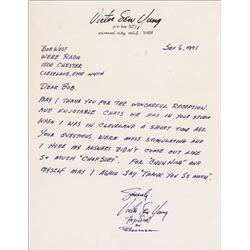 Victor Sen Yung
universal city, calif.
Sep 6, 1971
Bob West
Were Radio
1500 Chester
Cleveland, Ohio 44114
Dear Bob,
May I thank you for the wonderful reception
and enjoyable chats we had in your studio
when I was in Cleveland a short time ago.
Your questions were most stimulating and
I hope my answers didn't come out like
so much "chop suey". For "Chun King" and
myself may I again say "thank you so much".
Sincerely
Victor Sen Yung
"Hop Sing"
Bonanza